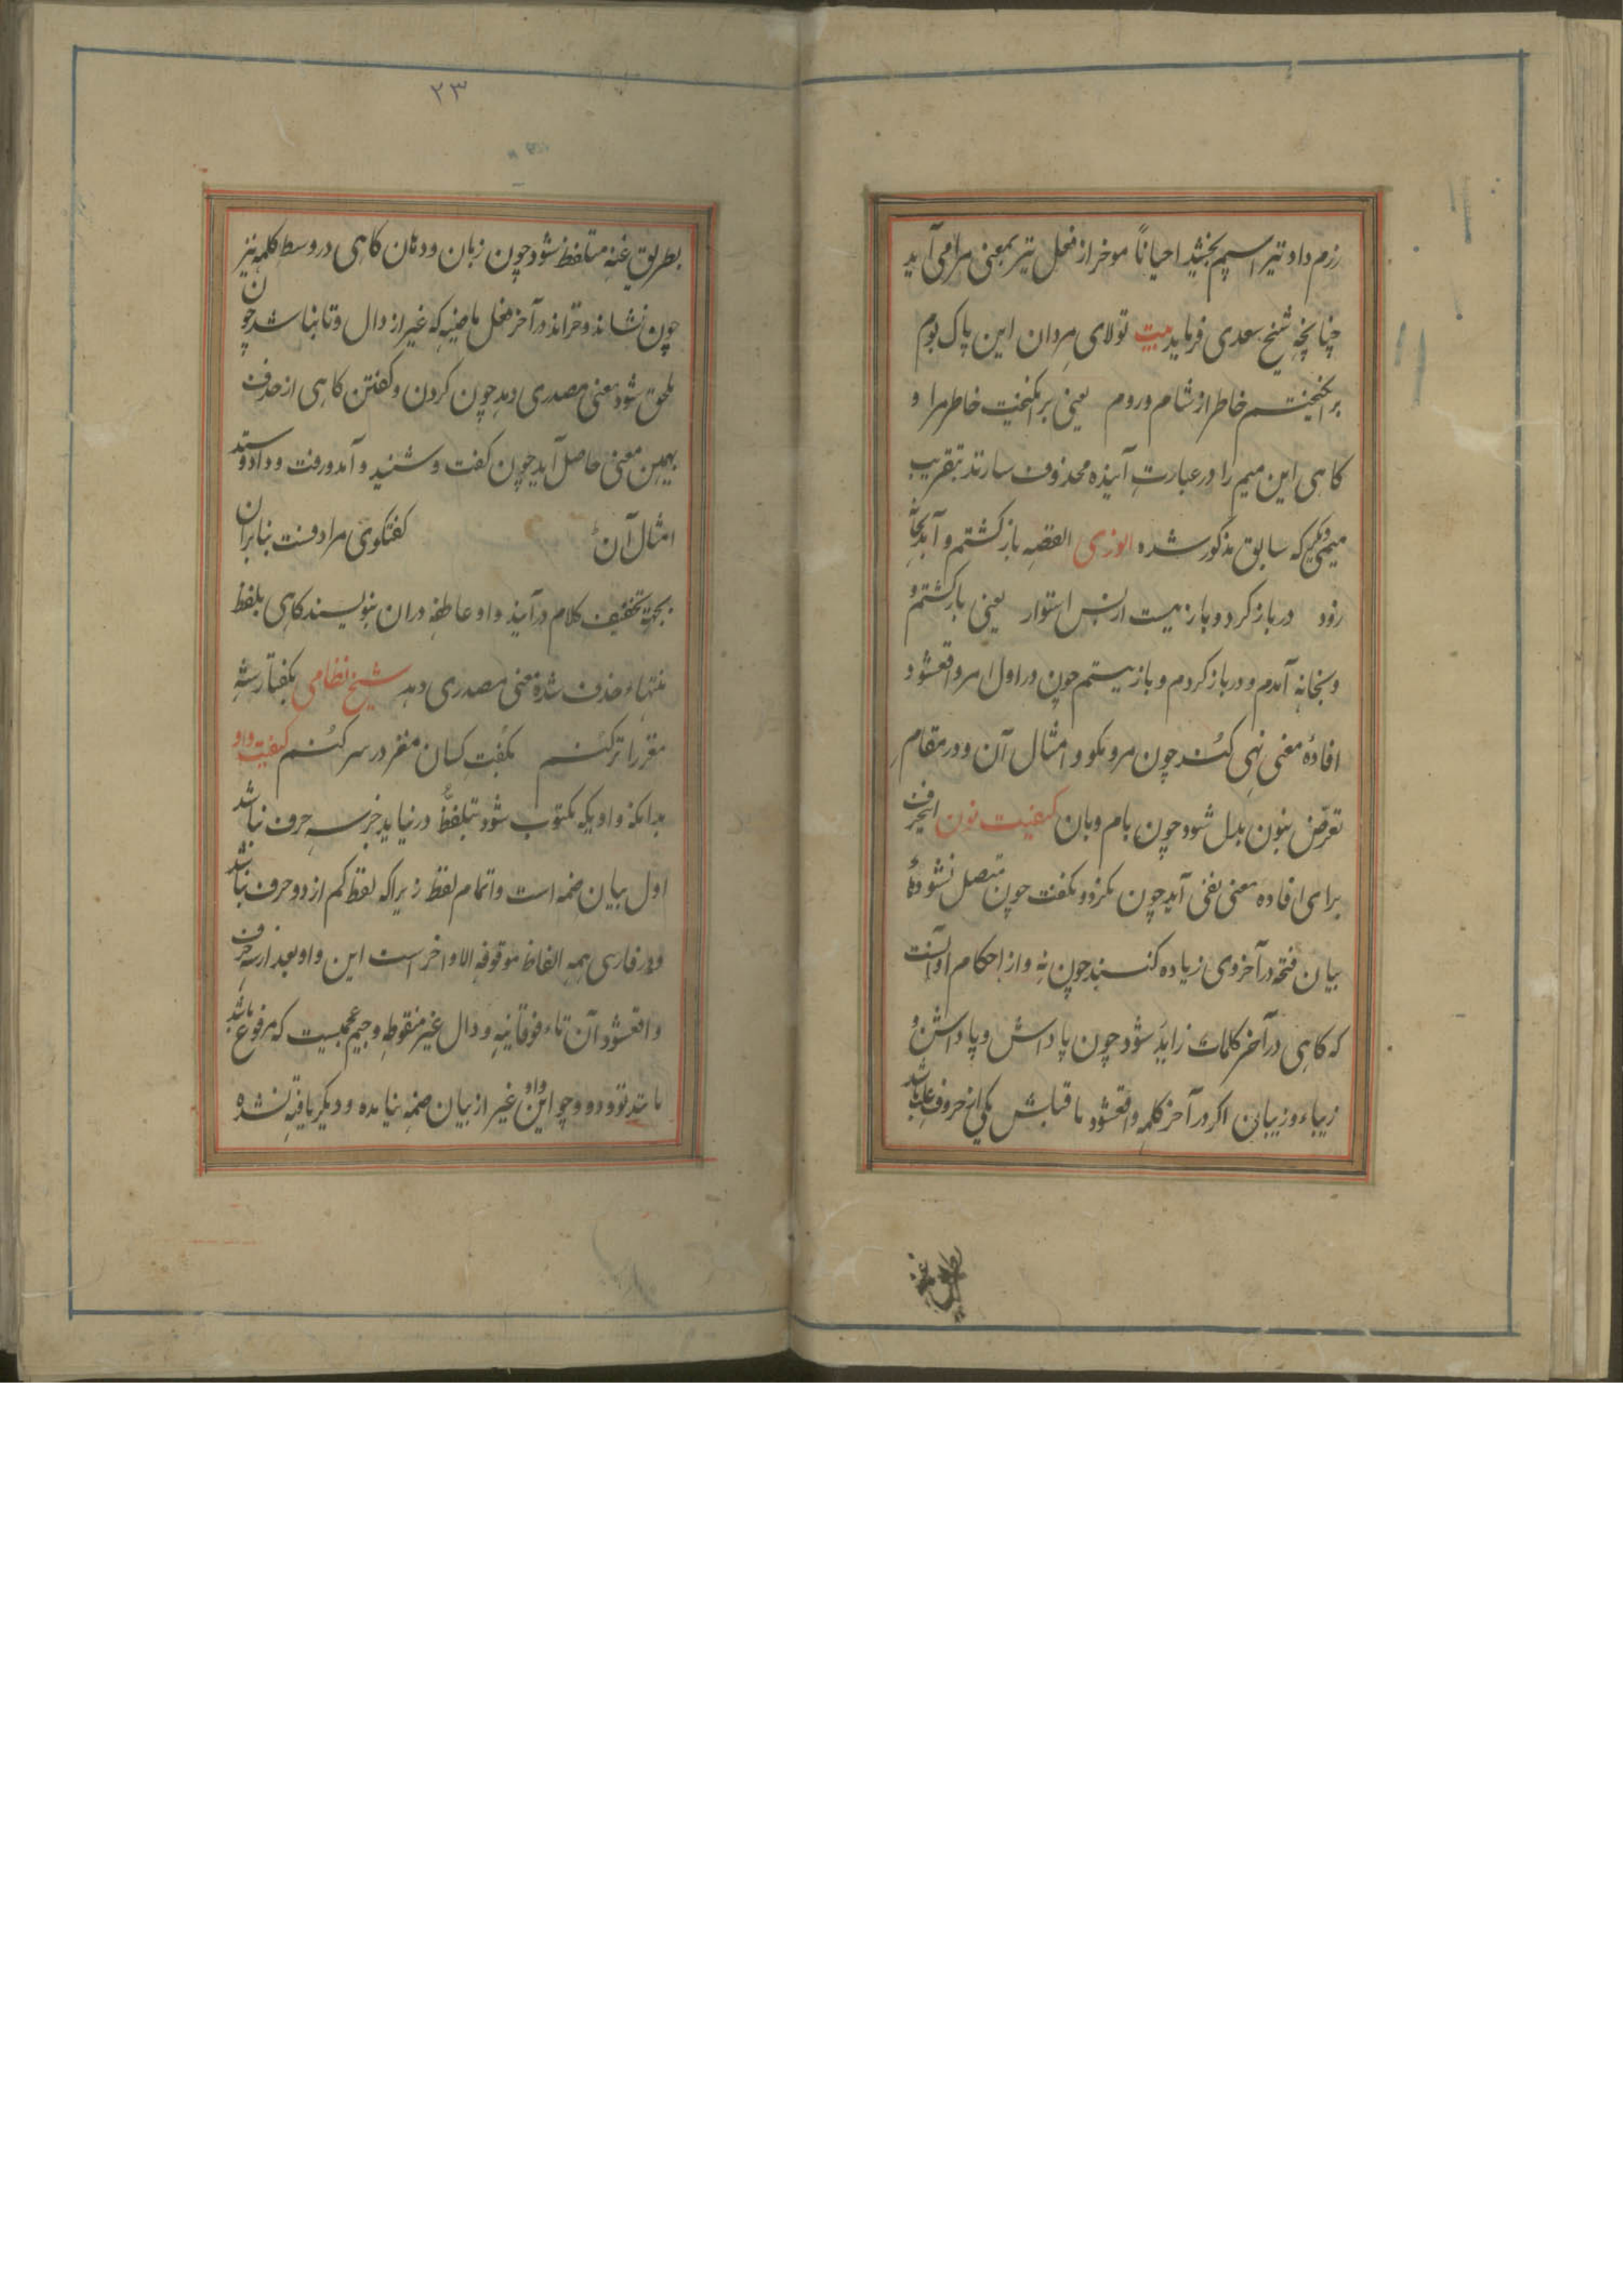 رزم داد و تیر اسپم بخشید احیاناً موخر از فعل نیز بمعنی مرا می آید
چنانچه شیخ سعدی فرماید بیت تولای مردان این پاک بوم
برانگیختم خاطر از شام و روم یعنی برانگیخت خاطر مرا و
کاهی این میم را در عبارت آینده محذوف سازند بتقریب
میمی دیگر که سابق مذکور شده انوری القصه باز کشتم و آمد بخانه
زود در باز کرد و باز ببست از پس استوار یعنی باز کشتم و
و بخانه آمدم و در باز کردم و باز ببستم چون در اول امر واقعشود
افادهٔ معنی نهی کند چون مرو مکو و امثال آن و در مقام
تعرض بنون بدل شود چون بام و بان کیفیت نون اینحرف
برای افاده معنی نفی آید چون نکرد و نکفت چون متصل نشود
بیان فتحه در آخر وی زیاده کنند چون نه و از احکام او آنست
که کاهی در آخر کلمات زاید شود چون پاداش و پاداشن و
زیبا و زیبان اکر در آخر کلمه واقعشود ماقبلش یکی از حروف علت باشد
۲۳
بطریق غنه متلفظ شود چون زبان و دهان کاهی در وسط کلمه نیز
چون نشاند و خراند در آخر فعل ماضیه که غیر از دال و تا نباشد چون
ملحق شود معنی مصدری دهد چون کردن و کفتن کاهی از حذف
بهمین معنی حاصل آید چون کفت و شنید و آمد و رفت و داد و ستد
امثال آن کفتکوی مرادفست بنا بران
بجهة تخفیف کلام در آیند واو عاطفه در ان ننویسند کاهی بلفظ
تنها حذف شده معنی مصدری دهد شیخ نظامی بکفتار شه
مغز را تر کنم بکفت کسان مغز در سر کنم کیفیت واو
بدانکه واویکه مکتوب شود بتلفظ در نیاید جز سه حرف نباشد
اول بیان ضمه است و اتمام لفظ زیرا که لفظ کم از دو حرف نباشد
و در فارسی همه الفاظ موقوفه الاواخر است این واو بعد از سه حرف
واقعشود آن تاء فوقانیه و دال غیر منقوطه و جیم عجمیست که مرفوع باشد
مانند تو و دو و چو این واو غیر از بیان ضمه نیامده و دیکر یافته نشده